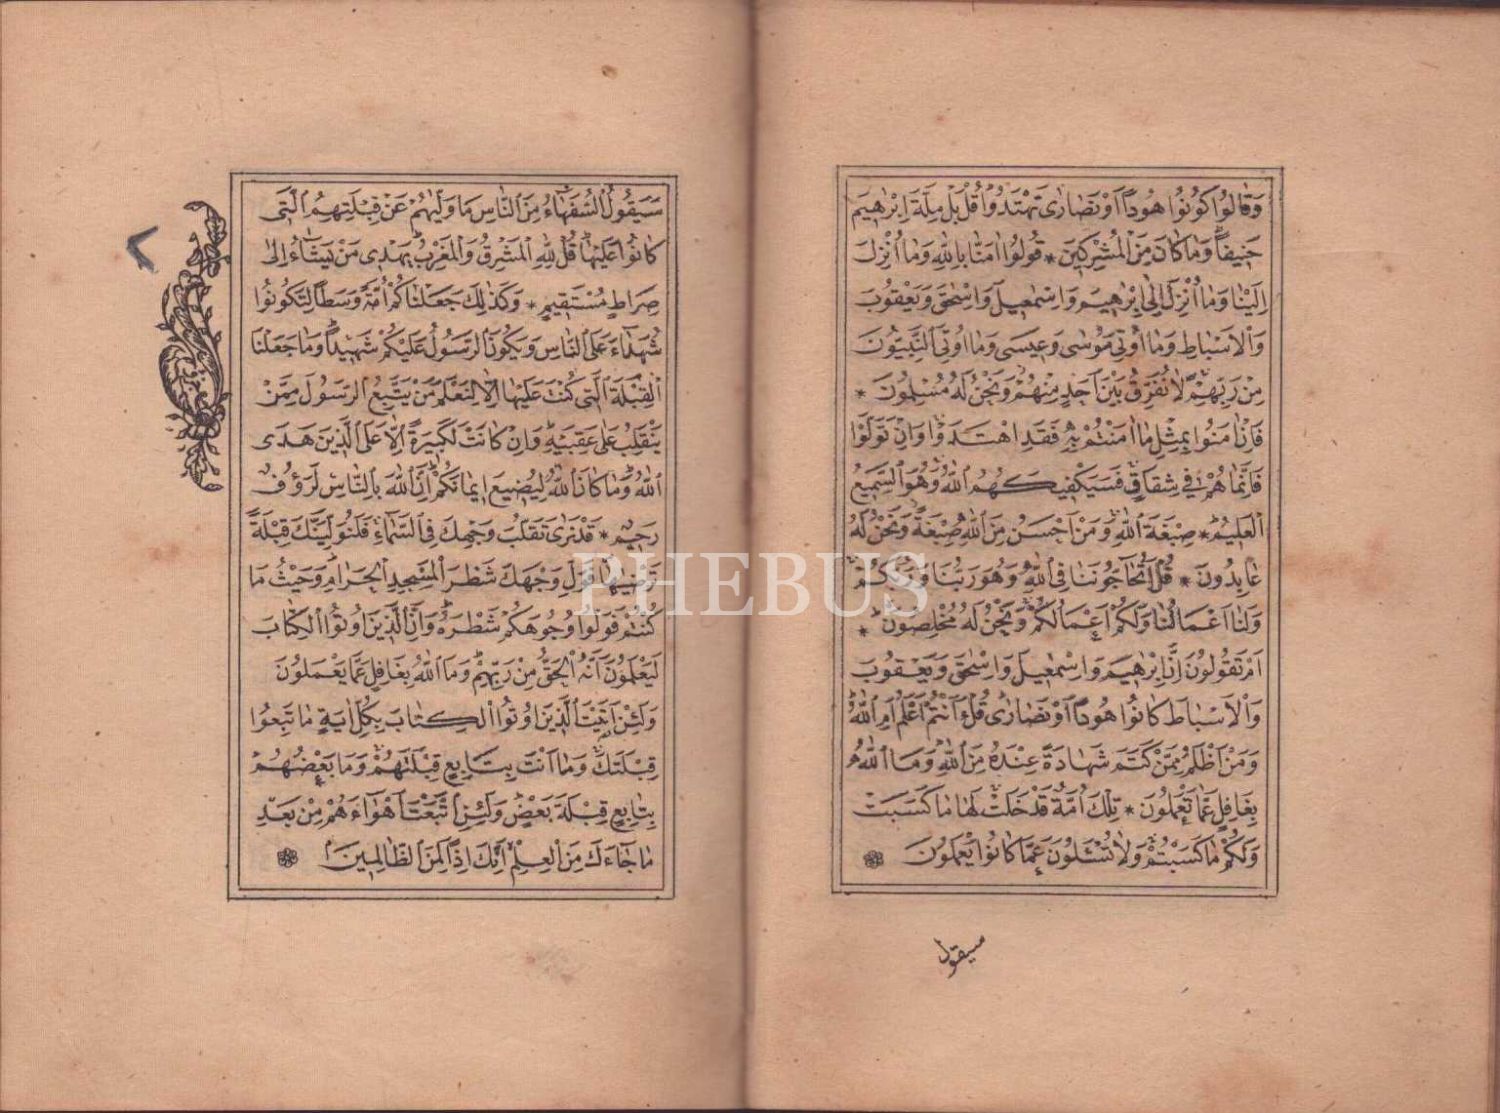 وَقَالُوا كُونُوا هُودًا اَوْ نَصَارٰى تَهْتَدُوا قُلْ بَلْ مِلَّةَ اِبْرٰهِيمَ
حَنِيفًا وَمَا كَانَ مِنَ الْمُشْرِكِينَ * قُولُوا اٰمَنَّا بِاللّٰهِ وَمَا اُنْزِلَ
اِلَيْنَا وَمَا اُنْزِلَ اِلٰى اِبْرٰهِيمَ وَاِسْمٰعِيلَ وَاِسْحٰقَ وَيَعْقُوبَ
وَالْاَسْبَاطِ وَمَا اُوتِيَ مُوسٰى وَعِيسٰى وَمَا اُوتِيَ النَّبِيُّونَ
مِنْ رَبِّهِمْ لَا نُفَرِّقُ بَيْنَ اَحَدٍ مِنْهُمْ وَنَحْنُ لَهُ مُسْلِمُونَ *
فَاِنْ اٰمَنُوا بِمِثْلِ مَا اٰمَنْتُمْ بِهِ فَقَدِ اهْتَدَوْا وَاِنْ تَوَلَّوْا
فَاِنَّمَا هُمْ فِي شِقَاقٍ فَسَيَكْفِيكَهُمُ اللّٰهُ وَهُوَ السَّمِيعُ
الْعَلِيمُ * صِبْغَةَ اللّٰهِ وَمَنْ اَحْسَنُ مِنَ اللّٰهِ صِبْغَةً وَنَحْنُ لَهُ
عَابِدُونَ * قُلْ اَتُحَاجُّونَنَا فِي اللّٰهِ وَهُوَ رَبُّنَا وَرَبُّكُمْ
وَلَنَا اَعْمَالُنَا وَلَكُمْ اَعْمَالُكُمْ وَنَحْنُ لَهُ مُخْلِصُونَ *
اَمْ تَقُولُونَ اِنَّ اِبْرٰهِيمَ وَاِسْمٰعِيلَ وَاِسْحٰقَ وَيَعْقُوبَ
وَالْاَسْبَاطَ كَانُوا هُودًا اَوْ نَصَارٰى قُلْ ءَاَنْتُمْ اَعْلَمُ اَمِ اللّٰهُ
وَمَنْ اَظْلَمُ مِمَّنْ كَتَمَ شَهَادَةً عِنْدَهُ مِنَ اللّٰهِ وَمَا اللّٰهُ
بِغَافِلٍ عَمَّا تَعْمَلُونَ * تِلْكَ اُمَّةٌ قَدْ خَلَتْ لَهَا مَا كَسَبَتْ
وَلَكُمْ مَا كَسَبْتُمْ وَلَا تُسْئَلُونَ عَمَّا كَانُوا يَعْمَلُونَ
سيقول
سَيَقُولُ السُّفَهَاءُ مِنَ النَّاسِ مَا وَلّٰيهُمْ عَنْ قِبْلَتِهِمُ الَّتِي
كَانُوا عَلَيْهَا قُلْ لِلّٰهِ الْمَشْرِقُ وَالْمَغْرِبُ يَهْدِي مَنْ يَشَاءُ اِلٰى
صِرَاطٍ مُسْتَقِيمٍ * وَكَذٰلِكَ جَعَلْنَاكُمْ اُمَّةً وَسَطًا لِتَكُونُوا
شُهَدَاءَ عَلَى النَّاسِ وَيَكُونَ الرَّسُولُ عَلَيْكُمْ شَهِيدًا وَمَا جَعَلْنَا
الْقِبْلَةَ الَّتِي كُنْتَ عَلَيْهَا اِلَّا لِنَعْلَمَ مَنْ يَتَّبِعُ الرَّسُولَ مِمَّنْ
يَنْقَلِبُ عَلٰى عَقِبَيْهِ وَاِنْ كَانَتْ لَكَبِيرَةً اِلَّا عَلَى الَّذِينَ هَدَى
اللّٰهُ وَمَا كَانَ اللّٰهُ لِيُضِيعَ اِيمَانَكُمْ اِنَّ اللّٰهَ بِالنَّاسِ لَرَؤُفٌ
رَحِيمٌ * قَدْ نَرٰى تَقَلُّبَ وَجْهِكَ فِي السَّمَاءِ فَلَنُوَلِّيَنَّكَ قِبْلَةً
تَرْضٰيهَا فَوَلِّ وَجْهَكَ شَطْرَ الْمَسْجِدِ الْحَرَامِ وَحَيْثُ مَا
كُنْتُمْ فَوَلُّوا وُجُوهَكُمْ شَطْرَهُ وَاِنَّ الَّذِينَ اُوتُوا الْكِتَابَ
لَيَعْلَمُونَ اَنَّهُ الْحَقُّ مِنْ رَبِّهِمْ وَمَا اللّٰهُ بِغَافِلٍ عَمَّا يَعْمَلُونَ
وَلَئِنْ اَتَيْتَ الَّذِينَ اُوتُوا الْكِتَابَ بِكُلِّ اٰيَةٍ مَا تَبِعُوا
قِبْلَتَكَ وَمَا اَنْتَ بِتَابِعٍ قِبْلَتَهُمْ وَمَا بَعْضُهُمْ
بِتَابِعٍ قِبْلَةَ بَعْضٍ وَلَئِنِ اتَّبَعْتَ اَهْوَاءَهُمْ مِنْ بَعْدِ
مَا جَاءَكَ مِنَ الْعِلْمِ اِنَّكَ اِذًا لَمِنَ الظَّالِمِينَ
٧
PHEBUS